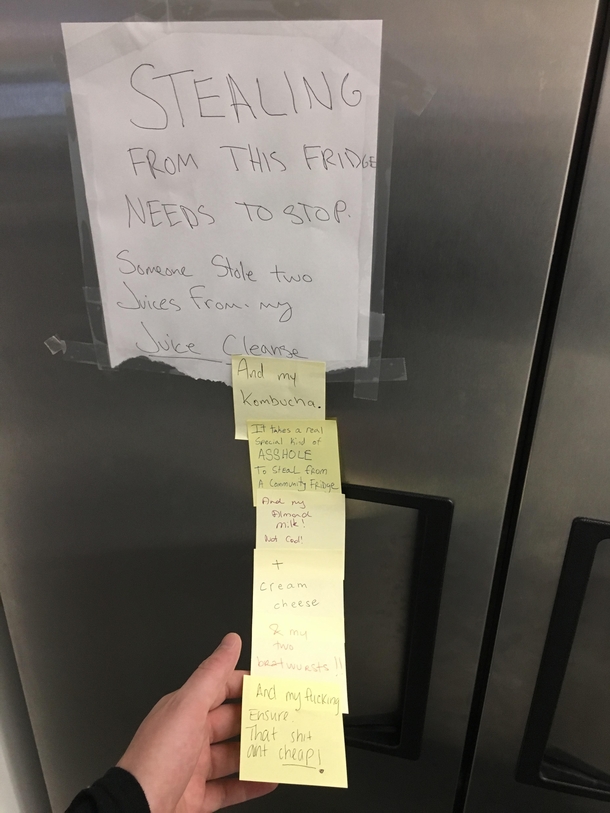 STEALING
FROM THIS FRIDGE
NEEDS TO STOP.
Someone Stole two
Juices From my
Juice Cleanse
And my
Kombucha.
It takes a real
special kind of
ASSHOLE
To steal from
A Community Fridge
And my
Almond
milk!
Not Cool!
+
cream
cheese
& my
two
bratwursts!!
And my fucking
Ensure.
That shit
aint cheap!